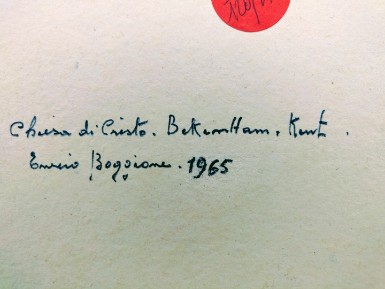 Chiesa di Cristo. BeKenHam. Kent.
Enrico Boggione. 1965